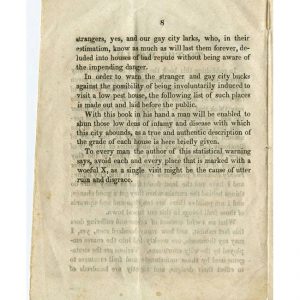 8
strangers, yes, and our gay city larks, who, in their
estimation, know as much as will last them forever, de-
luded into houses of bad repute without being aware of
the impending danger.
In order to warn the stranger and gay city bucks
against the possibility of being involuntarily induced to
visit a low pest house, the following list of such places
is made out and laid before the public.
With this book in his hand a man will be enabled to
shun those low dens of infamy and disease with which
this city abounds, as a true and authentic description of
the grade of each house is here briefly given.
To every man the author of this statistical warning
says, avoid each and every place that is marked with a
woeful X, as a single visit might be the cause of utter
ruin and disgrace.